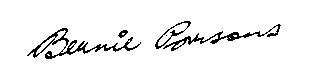 Bernie Parsons